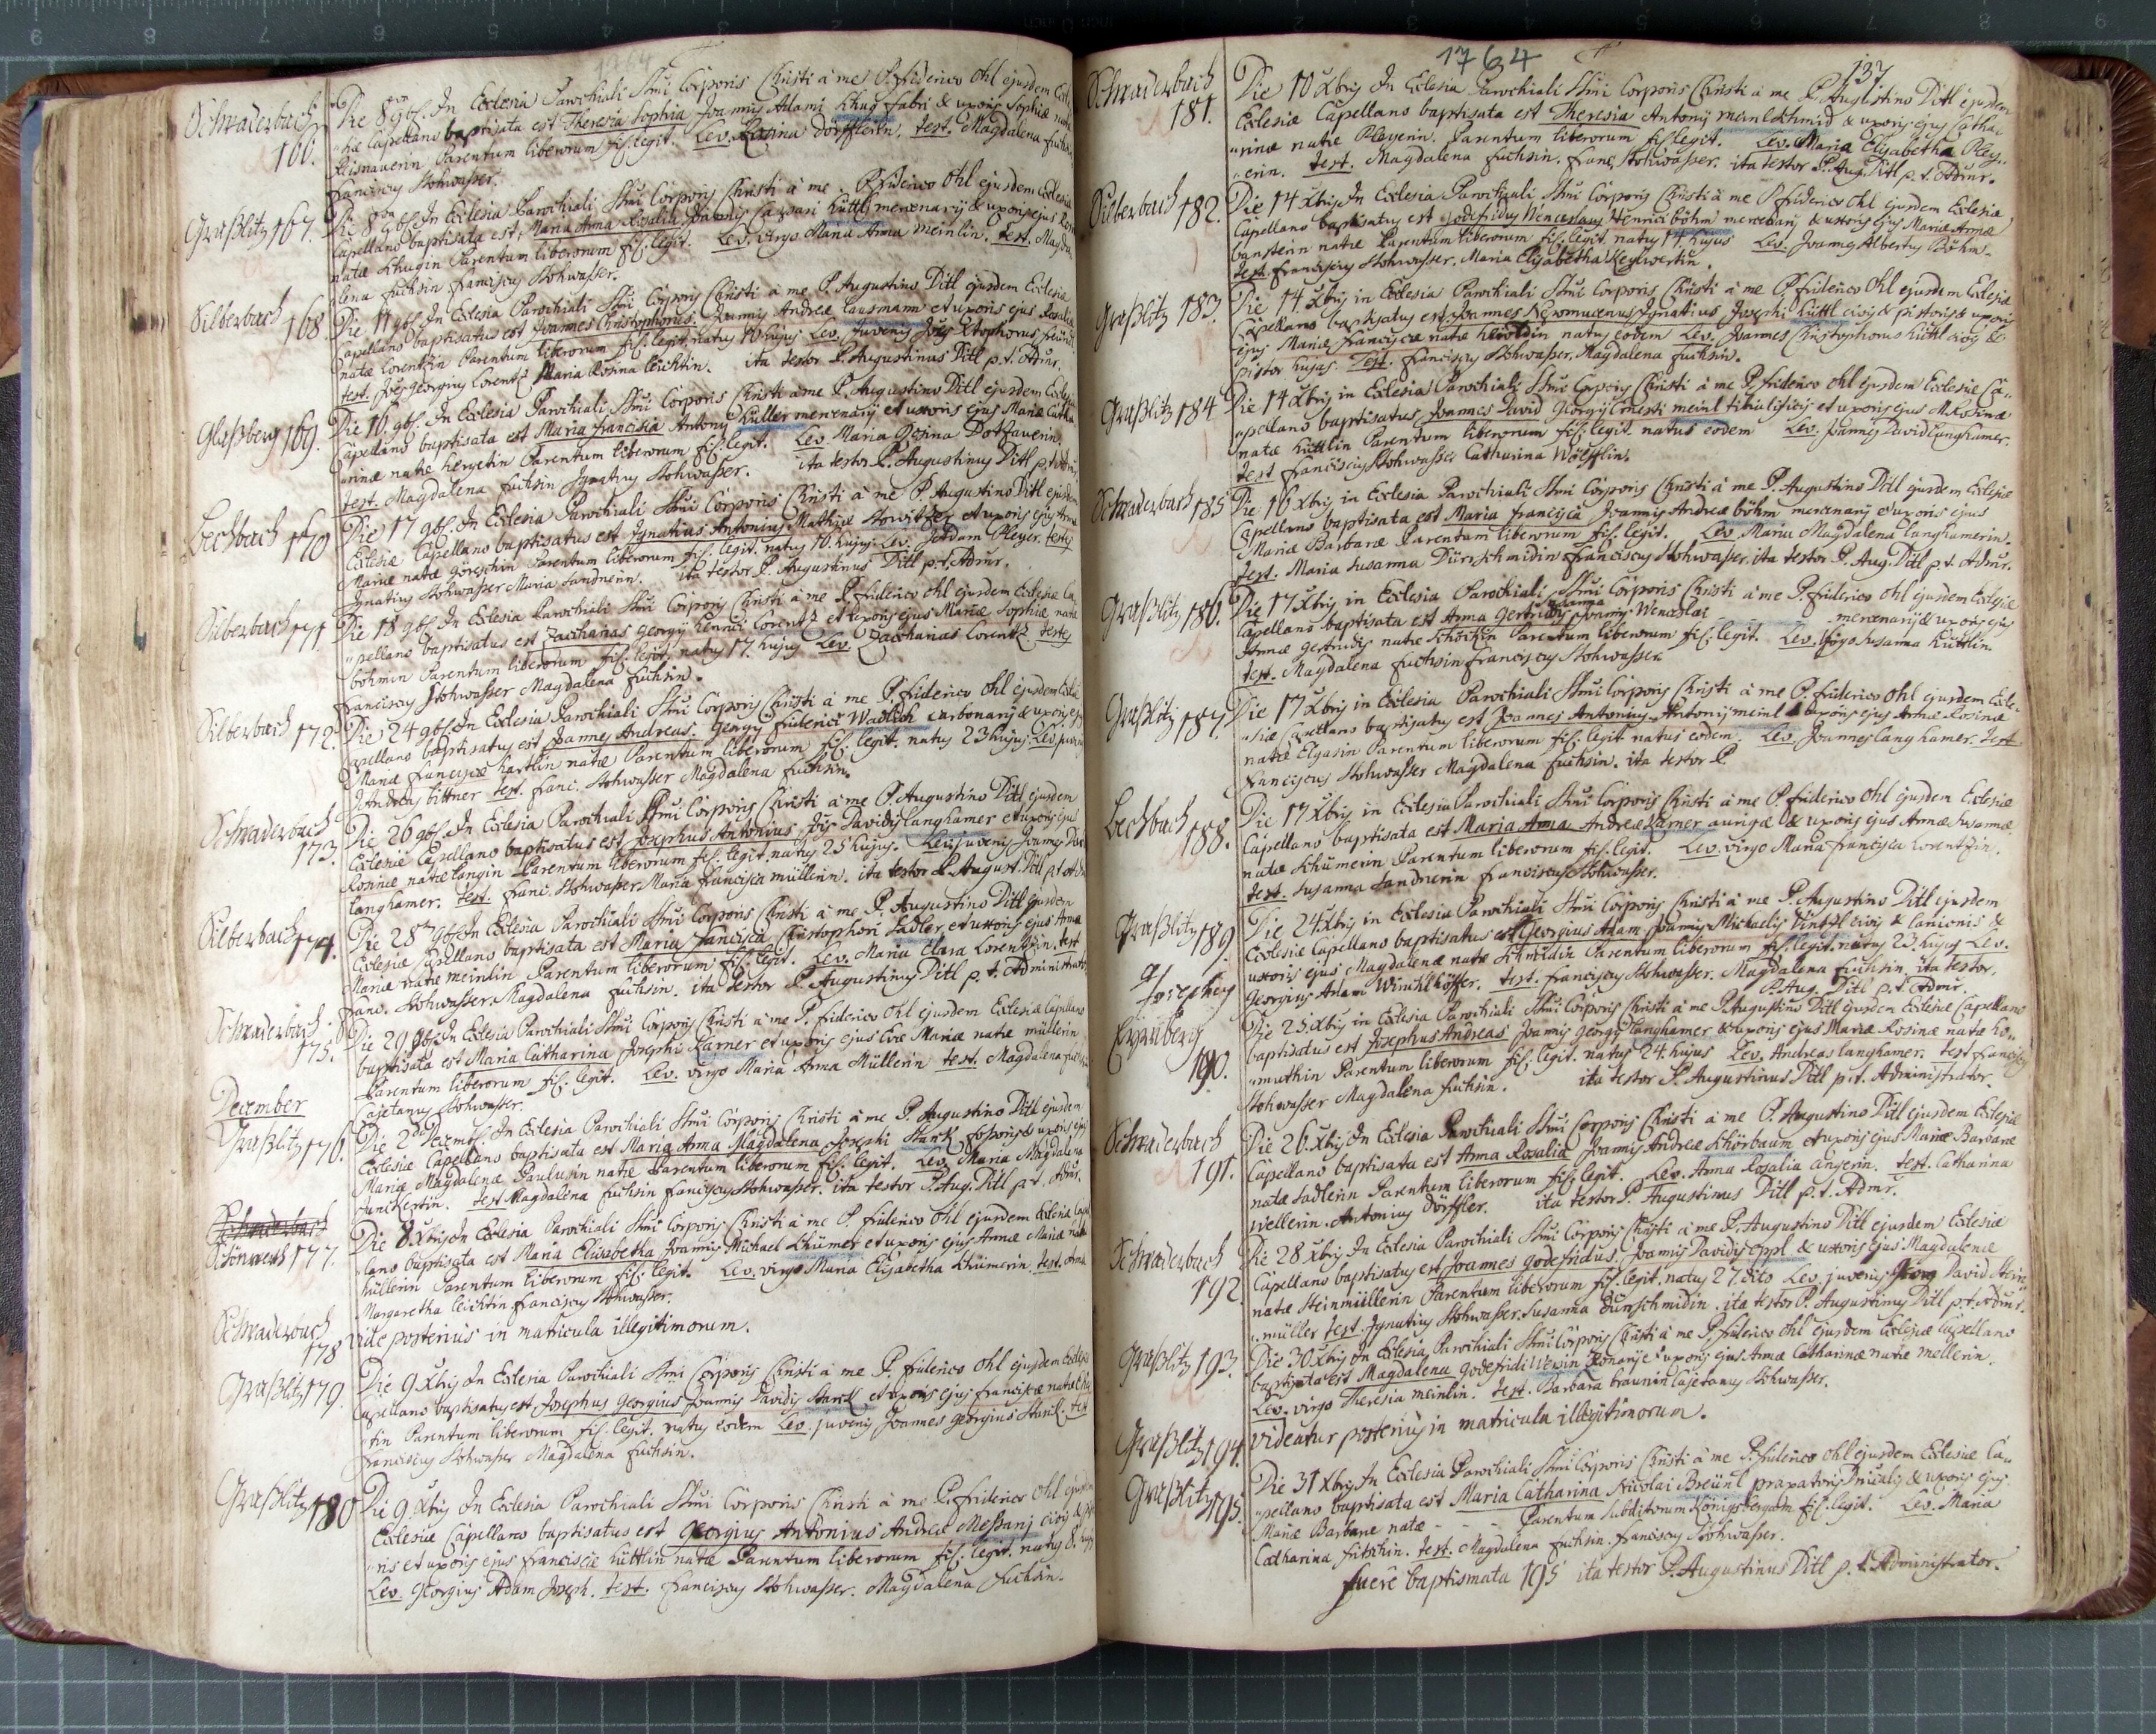 1764
Schwaderbach
166.
Die 8va 9bris. In Ecclesia Parochiali SSmi Corporis Christi à me P. Friderico Ohl ejusdem Eccle„
„siæ Capellano baptisata est Theresia Sophia Joannis Adami Khug fabri & uxoris Sophiæ natæ
Reisnauerin Parentum liberorum fil. legit. Lev. Rosina Dörfflerin. Test. Magdalena fuchsin
Franciscus Stohwasser.
Graßlitz 167.
Die 8va 9bris. In Ecclesia Parochiali SSmi Corporis Christi à me P. Friderico Ohl ejusdem Ecclesiæ
Capellano baptisata est, Maria Anna Rosalia Joannis Caspari Küttl mercenarij & uxoris ejus
natæ Khugin Parentum liberorum fil. legit. Lev. virgo Maria Anna Meinlin. Test. Magda„
„lena Fuchsin Franciscus Stohwasser.
Silberbach 168
Die 11 9bris. In Ecclesia Parochiali SSmi Corporis Christi à me P. Augustino Ditl ejusdem Ecclesiæ
Capellano baptisatus est Joannes Christophorus. Joannis Andreæ Lausmann et uxoris ejus Rosaliæ
natæ Lorentzin Parentum liberorum fil. legit. natus 10 hujus Lev. Juvenis Joës Xtophorus
test. Joës Georgius Lorentz Maria Rosina Leichtin. ita testor P. Augustinus Ditl p. t. Admr.
Glaßberg 169.
Die 16. 9bris. In Ecclesia Parochiali SSmi Corporis Christi à me P. Augustino Ditl ejusdem Ecclesiæ
Capellano baptisata est Maria Francisca Antonij Küller mercenarij et uxoris ejus Mariæ Catha
„rinæ natæ Hergetin Parentum liberorum fil. legit. Lev. Maria Rosina Dotzauerin.
Test. Magdalena Fuchsin Ignatius Stohwasser. ita testor P. Augustinus Ditl p. t. Admr.
Eechbach 170
Die 17 9bris. In Ecclesia Parochiali SSmi Corporis Christi à me P. Augustino Ditl ejusdem
Ecclesiæ Capellano baptisatus est Ignatius Antonius Mathiæ et uxoris ejus Annæ
Mariæ natæ Parentum liberorum fil. legit. natus 16. hujus. Lev. Pleyer. testes
Ignatius Stohwasser Maria Sandnerin. ita testor P. Augustinus Ditl p. t. Admr.
Silberbach 171
Die 18 9bris. In Ecclesia Parochiali SSmi Corporis Christi à me P. Friderico Ohl ejusdem Ecclesiæ Ca„
„pellano baptisatus est Zacharias Georgij Henrici Lorentz et Uxoris ejus Mariæ Sophiæ natæ
Böhmin Parentum liberorum fil. legit. natus 17. hujus Lev. Zacharias Lorentz testes
Franciscus Stohwasser Magdalena Fuchsin.
Silberbach 172.
Die 24 9bris. In Ecclesia Parochiali SSmi Corporis Christi à me P. Friderico Ohl ejusdem Ecclesiæ
Capellano baptisatus est Joannes Andreas. Georgij Friderici Wadlich carbonarij & uxoris ejus
Mariæ Franciscæ Hartlin natæ Parentum liberorum fil. legit. natus 23 hujus. Lev. juvenis
J. Andreas Bittner test. Franc. Stohwasser Magdalena Fuchsin.
Schwaderbach
173.
Die 26 9bris. In Ecclesia Parochiali SSmi Corporis Christi à me P. Augustino Ditl ejusdem
Ecclesiæ Capellano baptisatus est Josephus Antonius Jois Davidis Langhamer et uxoris ejus
Rosinæ natæ Langin Parentum liberorum fil. legit. natus 25 hujus. Lev. juvenis Joannes
Langhamer. Test. Franc. Stohwasser. Maria Francisca Müllerin. ita testor P. August. Ditl p. t. Admr.
Silberbach 174.
Die 28va 9bris In Ecclesia Parochiali SSmi Corporis Christi à me P. Augustino Ditl ejusdem
Ecclesiæ Capellano baptisata est Maria Francisca Christophori Sadler, et uxoris ejus Annæ
Mariæ natæ Meinlin Parentum liberorum fil. legit. Lev. Maria Clara Lorentzin, Test
Franc. Stohwasser Magdalena Fuchsin. ita testor P. Augustinus Ditl p. t. Administrator
Schwaderbach
175.
Die 29 9bris. In Ecclesia Parochiali SSmi Corporis Christi à me P. Friderico Ohl ejusdem Ecclesiæ Capellano
baptisata est Maria Catharina, Josephi Karner et uxoris ejus Evæ Mariæ natæ Müllerin
Parentum liberorum fil. legit. Lev. virgo Maria Anna Müllerin test. Magdalena
Cajetanus Stohwasser.
December
Graßlitz 176.
Die 2da Decemb. In Ecclesia Parochiali SSmi Corporis Christi à me P. Augustino Ditl ejusdem
Ecclesiæ Capellano baptisata est Maria Anna Magdalena Josephi Starck fossoris & uxoris ejus
Mariæ Magdalenæ Paulusin natæ Parentum liberorum fil. legit. Lev. Maria Magdalena
Junckertin. Test. Magdalena Fuchsin Franciscus Stohwasser. ita testor P. Aug. Ditl p. t. Admr.
Schwaderbach
Schönwerth 177.
Die 8. Xbris In Ecclesia Parochiali SSmi Corporis Christi à me P. Friderico Ohl ejusdem Ecclesiæ Capel
„lano baptisata est Maria Elisabetha Joannis Michael Khümer et uxoris ejus Annæ Mariæ natæ
Küllerin Parentum liberorum fil. legit. Lev. virgo Maria Elisabetha Khümerin. Test. Anna
Margaretha Leichtin Franciscus Stohwasser.
Schwaderbach
178
vide posterius in matricula illegitimorum.
Graßlitz 179.
Die 9 Xbris In Ecclesia Parochiali SSmi Corporis Christi à me P. Friderico Ohl ejusdem Ecclesiæ
Capellano baptisatus est Josephus Georgius Joannis Davidis Starck et uxoris ejus Franciscæ natæ
„sin Parentum liberorum fil. legit. natus eodem Lev. juvenis Joannes Georgius Starck. test
Franciscus Stohwasser Magdalena Fuchsin.
Graßlitz 180
Die 9 Xbris In Ecclesia Parochiali SSmi Corporis Christi à me P. Friderico Ohl ejusdem
Ecclesiæ Capellano baptisatus est Georgius Antonius Andreæ Meßanj civis &
„ris et uxoris ejus Franciscæ Küttlin natæ Parentum liberorum fil. legit. natus 8. hujus
Lev. Georgius Adam Joseph. Test. Franciscus Stohwasser. Magdalena Fuchsin.
1764
137
Schwaderbach
181.
Die 10 Xbris In Ecclesia Parochiali SSmi Corporis Christi à me P. Augustino Ditl ejusdem
Ecclesiæ Capellano baptisata est Theresia Antonij Meinl Schmid & uxoris ejus Catha„
„rinæ natæ Pleyerin. Parentum liberorum fil. legit. Lev. Maria Elisabetha Pley„
„erin. Test. Magdalena Fuchsin. Franc. Stohwasser. ita testor P. Aug. Ditl p. t. Admr.
Silberbach 182.
Die 14 Xbris In Ecclesia Parochiali SSmi Corporis Christi à me P. Friderico Ohl ejusdem Ecclesiæ
Capellano baptisatus est Godefridus Wenceslaus Henrici Böhm mercenarij & uxoris ejus Mariæ Annæ
natæ Parentum liberorum fil. legit. natus 14. hujus Lev. Joannes Albertus Böhm.
Test. Franciscus Stohwasser. Maria Elisabetha Keylwertin.
Graßlitz 183.
Die 14 Xbris in Ecclesia Parochiali SSmi Corporis Christi à me P. Friderico Ohl ejusdem Ecclesiæ
Capellano baptisatus est Joannes Nepomucenus Ignatius Josephi Küttl civis & pistoris & uxoris
ejus Mariæ Franciscæ natæ natus eodem Lev. Joannes Christophorus Küttl civis &
pistor hujas. Test. Franciscus Stohwasser, Magdalena Fuchsin.
Graßlitz 184
Die 14 Xbris in Ecclesia Parochiali SSmi Corporis Christi à me P. Friderico Ohl ejusdem Ecclesiæ Ca„
„pellano baptisatus Joannes David Georgij Ernesti Meinl tibialificis et uxoris ejus M. Rosinæ
natæ Küttlin Parentum liberorum fil. legit. natus eodem Lev. Joannes David Langhamer.
Test Franciscus Stohwasser Catharina Wölfflin.
Schwaderbach 185
Die 16 Xbris in Ecclesia Parochiali SSmi Corporis Christi à me P. Augustino Ditl ejusdem Ecclesiæ
Capellano baptisata est Maria Francisca Joannis Andreæ Böhm mercenarij & uxoris ejus
Mariæ Barbaræ Parentum liberorum fil. legit. Lev. Maria Magdalena Langhamerin.
Test. Maria Susanna Dürrschmidin Franciscus Stohwasser. ita testor P. Aug. Ditl p. t. Admr.
Graßlitz 186.
Die 17 Xbris in Ecclesia Parochiali SSmi Corporis Christi à me P. Friderico Ohl ejusdem Ecclesiæ
Capellano baptisata est Anna Gertrudis Susanna Joannis Wenceslai mercenarij & uxoris ejus
Annæ Gertrudis natæ Parentum liberorum fil. legit. Lev. Virgo Susanna Küttlin.
Test. Magdalena Fuchsin Franciscus Stohwasser.
Graßlitz 187.
Die 17 Xbris in Ecclesia Parochiali SSmi Corporis Christi à me P. Friderico Ohl ejusdem Eccle„
„siæ Capellano baptisatus est Joannes Antonius. Antonij Meinl & uxoris ejus Annæ Rosinæ
natæ Parentum liberorum fil. legit natus eodem. Lev. Joannes Langhamer. Test
Franciscus Stohwasser Magdalena Fuchsin. ita testor P
Eechbach
188.
Die 17 Xbris in Ecclesia Parochiali SSmi Corporis Christi à me P. Friderico Ohl ejusdem Ecclesiæ
Capellano baptisata est Maria Anna Andreæ Karner aurigæ & uxoris ejus Annæ Susannæ
natæ Schumerin Parentum liberorum fil. legit. Lev. virgo Maria Francisca Lorentzin.
Test. Susanna Sandnerin Franciscus Stohwasser.
Graßlitz 189.
Die 24 Xbris in Ecclesia Parochiali SSmi Corporis Christi à me P. Augustino Ditl ejusdem
Ecclesiæ Capellano baptisatus est Georgius Adam Joannis Michaelis civis & lanionis &
uxoris ejus Magdalenæ natæ Schmidin Parentum liberorum fil. legit. natus 23. hujus Lev.
Georgius Adam Winckhlhöffer. Test. Franciscus Stohwasser. Magdalena Fuchsin. ita testor.
P. Aug. Ditl p. t. Admr.
190.
Die 25 Xbris in Ecclesia Parochiali SSmi Corporis Christi à me P. Augustino Ditl ejusdem Ecclesiæ Capellano
baptisatus est Josephus Andreas Joannis Georgij Langhamer & uxoris ejus Mariæ Rosinæ natæ Ho„
„muthin Parentum liberorum fil. legit. natus 24. hujus Lev. Andreas Langhamer. Test Franciscus
Stohwasser Magdalena Fuchsin. ita testor P. Augustinus Ditl p. t. Administrator.
Schwaderbach
191.
Die 26 Xbris In Ecclesia Parochiali SSmi Corporis Christi à me P. Augustino Ditl ejusdem Ecclesiæ
Capellano baptisata est Anna Rosalia Joannis Andreæ Schörbaum et uxoris ejus Mariæ Barbaræ
natæ Sadlerin Parentum liberorum fil. legit. Lev. Anna Rosalia Angerin. Test. Catharina
Antonius Dörffler. ita testor P. Augustinus Ditl p. t. Admr.
Schwaderbach
192.
Die 28 Xbris In Ecclesia Parochiali SSmi Corporis Christi à me P. Augustino Ditl ejusdem Ecclesiæ
Capellano baptisatus est Joannes Godefridus. Joannis Davidis Eppl & uxoris ejus Magdalenæ
natæ Steinmüllerin Parentum liberorum fil. legit. natus 27. dito Lev. juvenis David Stein„
„müller Test. Ignatius Stohwasser. Susanna Dürrschmidin. ita testor P. Augustinus Ditl p. t. Admr.
Graßlitz 193.
Die 30 Xbris In Ecclesia Parochiali SSmi Corporis Christi à me P. Friderico Ohl ejusdem Ecclesiæ Capellano
baptisata est Magdalena Godefridi & uxoris ejus Annæ Catharinæ natæ Mellerin.
Lev. virgo Theresia Meinlin. Test. Barbara Braunin Cajetanus Stohwasser.
Graßlitz 194.
videatur posterius in matricula illegitimorum.
Graßlitz 195.
Die 31 Xbris In Ecclesia Parochiali SSmi Corporis Christi à me P. Friderico Ohl ejusdem Ecclesiæ Ca„
„pellano baptisata est Maria Catharina Nicolai Breünl & uxoris ejus
Mariæ Barbaræ natæ - - - Parentum subditorum fil. legit. Lev. Maria
Catharina Fritschin. Test. Magdalena Fuchsin. Franciscus Stohwasser.
Fuere baptismata 195 ita testor P. Augustinus Ditl p. t. Administrator.